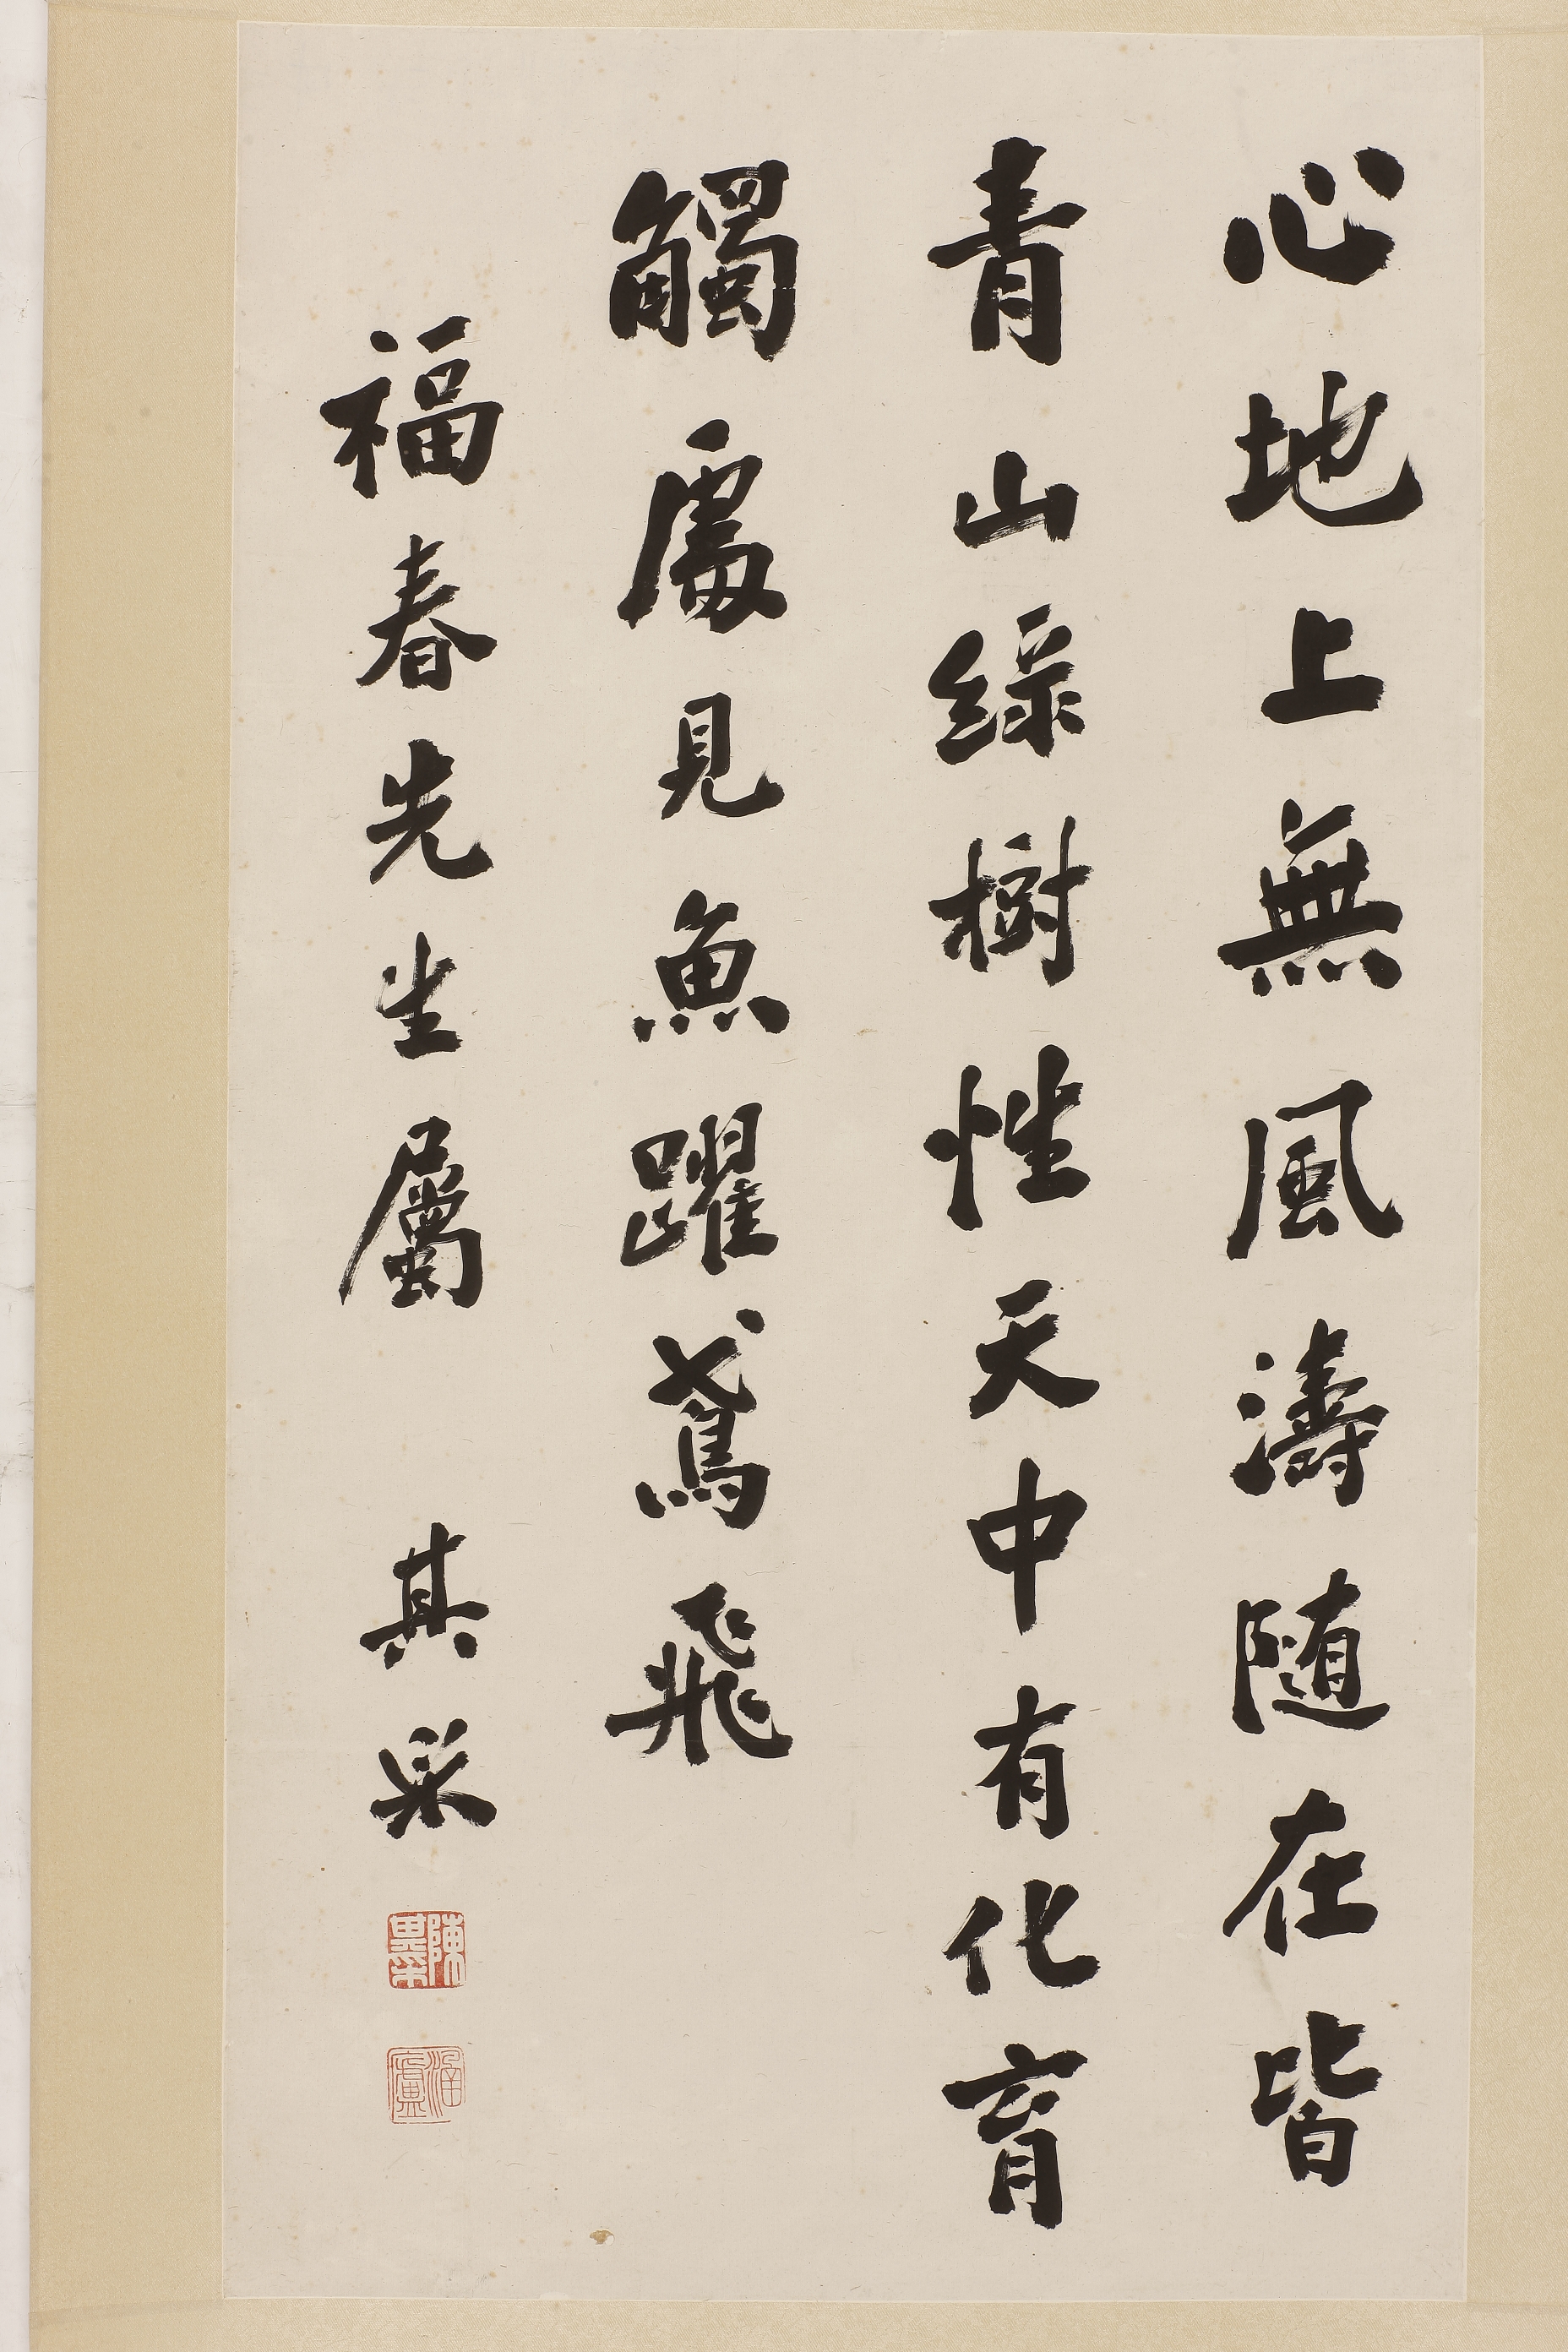 心地上無風濤随在皆
青山綠樹性天中有化育
觸處見魚躍鳶飛
福春先生屬 其采
陳其采
涵廬